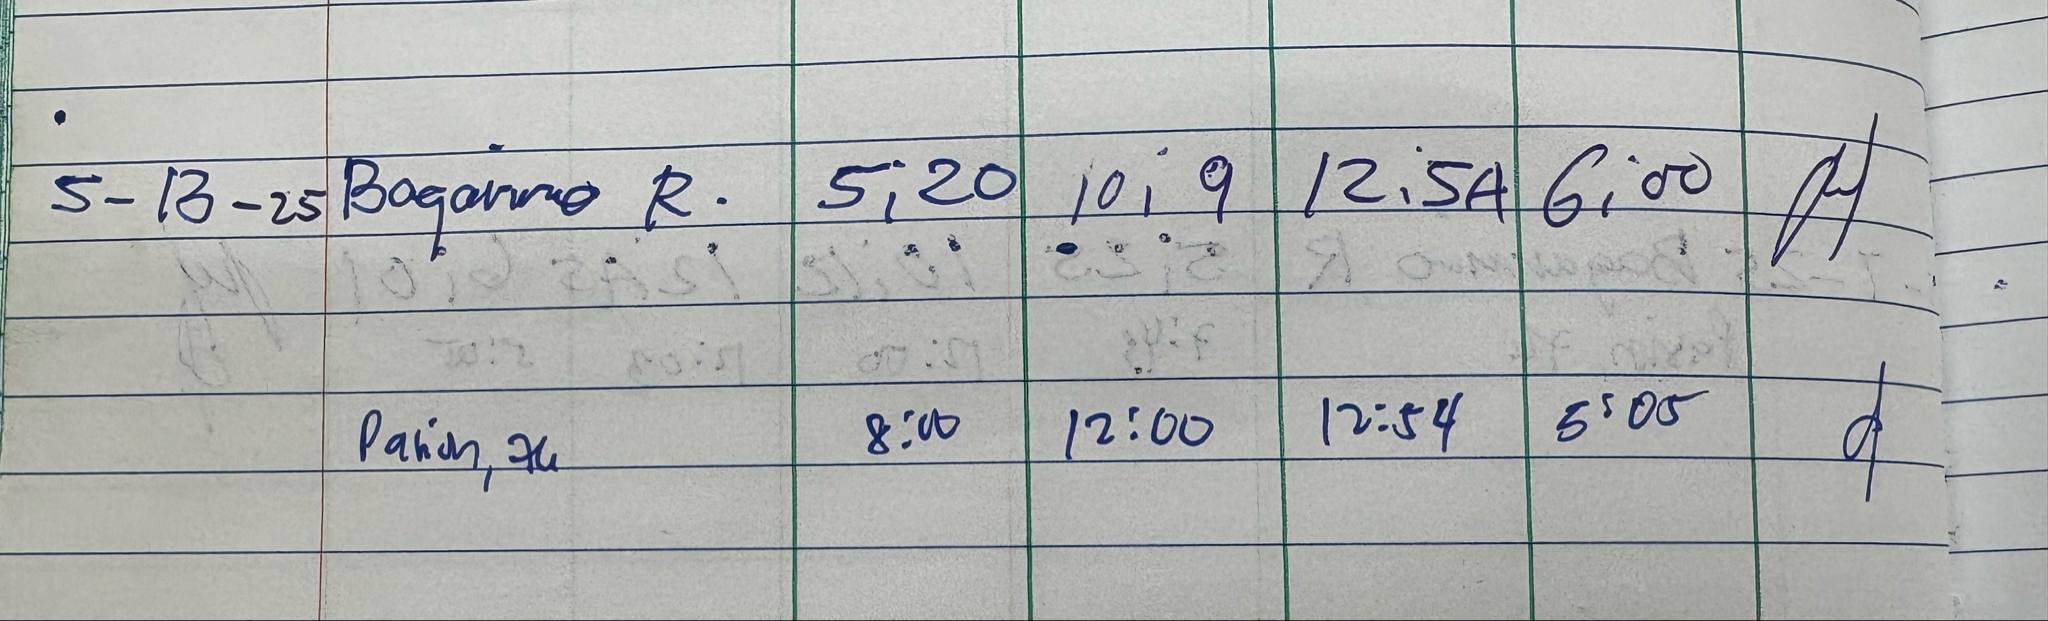 5-13-25 Bagarino R. 5:20 10:9 12:54 6:00
8:00 12:00 12:54 5:05